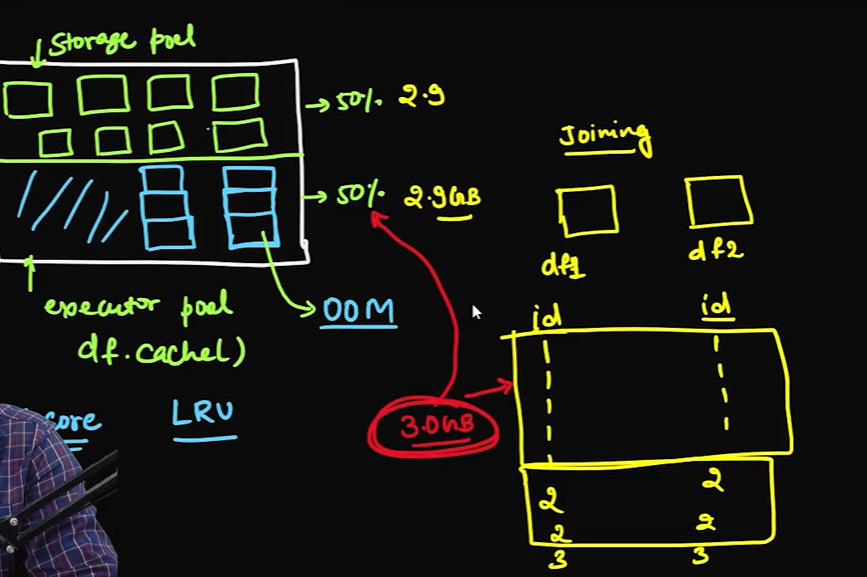 Storage pool
50% 2.9
50% 2.9GB
executor pool
df.cache()
OOM
core
LRU
3.0GB
Joining
df1 df2
id id
2 2
2 2
3 3